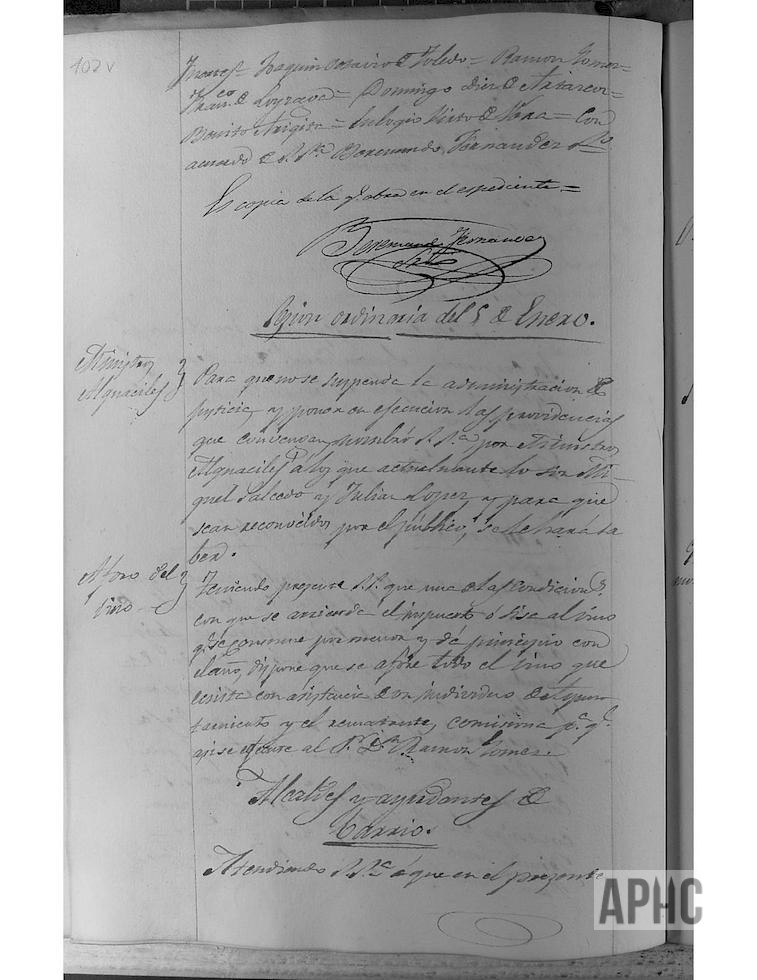 102v
Joaquin Rosario de Toledo = Ramon Gomez =
Fran.co de Lograva = Domingo diez de
Benito Arigita = Eulogio de Vera = Con
acuerdo de S. S.ria Beremundo Fernandez S.rio
Es copia de la q.e obra en el espediente =
Beremundo Fernandez
Srio
Sesion ordinaria del 5 de Enero.
Ministros
Alguaciles
Para que no se suspenda la administracion de
justicia, y poner en ejecucion las providencias
que convengan, nombró S. S.ria por Ministros
Alguaciles á los que actualmente lo son Mi-
guel Salcedo y Julian Lopez y para que
sean reconocidos por el público, se le hará sa
ber.
Aforo del
vino
Teniendo presente S. S.a que una de las condiciones
con que se arrienda el impuesto ó sisa al vino
q.e se consume por menor y dá principio con
el año, dispone que se afore todo el vino que
ecsista con asistencia de un individuo de Ayun
tamiento y el rematante, comisiona p.a q.e
asi se efectue al S.r D.n Ramon Gomez.
Alcaldes y ayudantes de
barrio.
Atendiendo S. S.ria á que en el presente
APHC